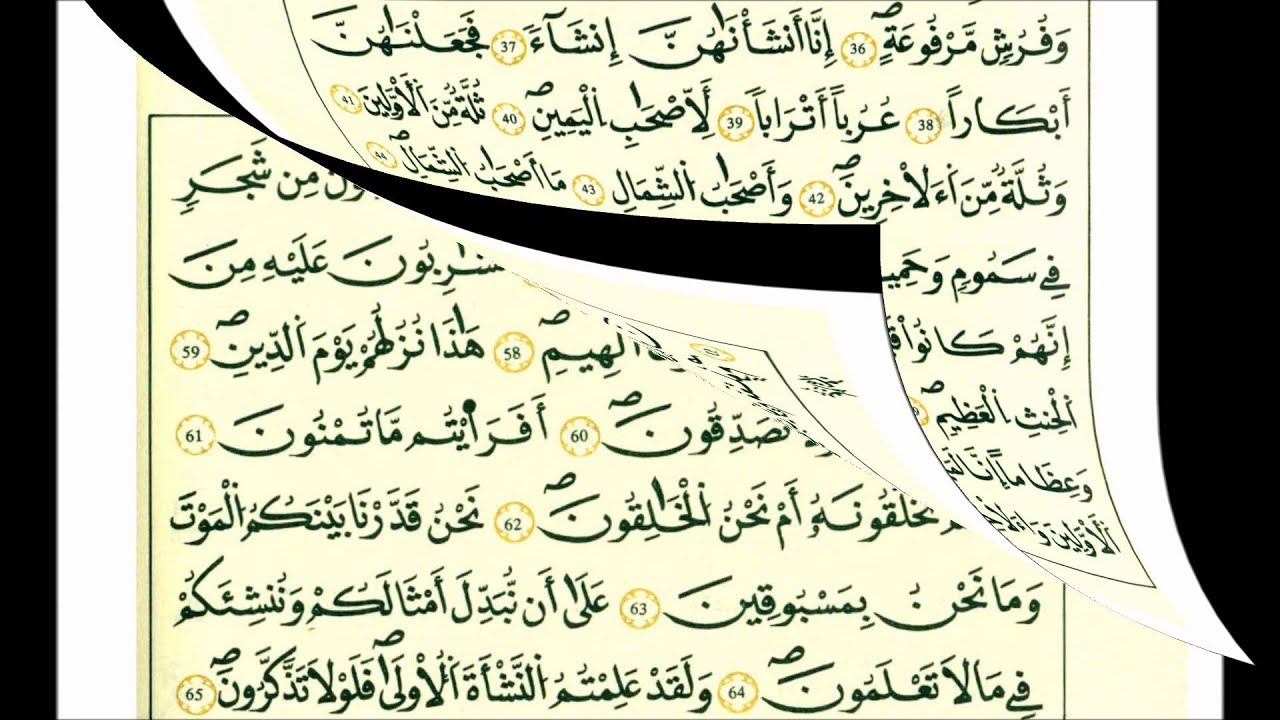 وَفُرُشٖ مَّرْفُوعَةٍۖ 36 اِنَّا أَنشَأْنَٰهُنَّ إِنشَآءَ 37 فَجَعَلْنَٰهُنَّ
أَبْكَاراً 38 عُرُباً أَتْرَاباً 39 لِّأَصْحَٰبِ اِ۬لْيَمِينِۖ 40 ثُلَّةٞ مِّنَ اَ۬لْأَوَّلِينَ 41
وَثُلَّةٞ مِّنَ اَ۬ءَلَاخِرِينَۖ 42 وَأَصْحَٰبُ اُ۬لشِّمَالِ 43 مَا أَصْحَٰبُ اُ۬لشِّمَالِۖ 44
فِے سَمُومٖ
إِنَّهُمْ كَانُواْ
اَ۬لْحِنثِ اِ۬لْعَظِيمِۖ
وَعِظَٰماً اِنَّا
اَ۬لْأَوَّلِينَ
مِن شَجَرٖ
عَلَيْهِ مِنَ
اَ۬لْهِيمِۖ 58 هَٰذَا نُزُلُهُمْ يَوْمَ اَ۬لدِّينِۖ 59
تُصَدِّقُونَۖ 60 أَفَرَٰٓيْتُم مَّا تُمْنُونَ 61
تَخْلُقُونَهُۥ أَمْ نَحْنُ اُ۬لْخَٰلِقُونَۖ 62 نَحْنُ قَدَّرْنَا بَيْنَكُمُ اُ۬لْمَوْتَ
وَمَا نَحْنُ بِمَسْبُوقِينَ 63 عَلَىٰ أَن نُّبَدِّلَ أَمْثَٰلَكُمْ وَنُنشِئَكُمْ
فِے مَا لَا تَعْلَمُونَۖ 64 وَلَقَدْ عَلِمْتُمُ اُ۬لنَّشْأَةَ اَ۬لْأُولَىٰۖ فَلَوْلَا تَذَّكَّرُونَۖ 65